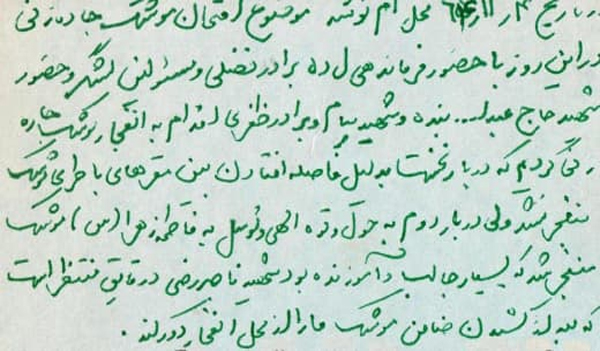 در تاریخ محل ام نوشته موضوع امتحان موشک جا
در این روز با حضور فرماندهی ل ده برادر فضلی و مسئولین لشگر و حضور
شهید حاج عبدا... بنده و شهید پیام و برادر ظفری اقدام به انفجار موشک جاره
کردیم که در بار نخست بدلیل فاصله افتادن بین سرهای باطری موشک
منفجر نشد ولی در بار دوم به حول و قوه الهی و توسل به فاطمه زهرا (س) موشک
منفجر شد که بسیار جالب و آموزنده بود شهید ناصر رضی در دقایق منتظر است
که بعد از کشیدن ضامن موشک ما را از محل انفجار دور کند .